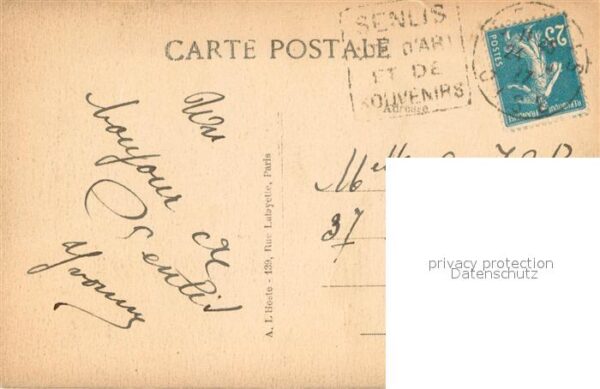 CARTE POSTALE
SENLIS
D'ART
ET DE
SOUVENIRS
Adresse
25
POSTES
Un
bonjour de
Senlis
Yvonne
A. L'Hoste - 139, Rue Lafayette, Paris
Melle
37
privacy protection
Datenschutz